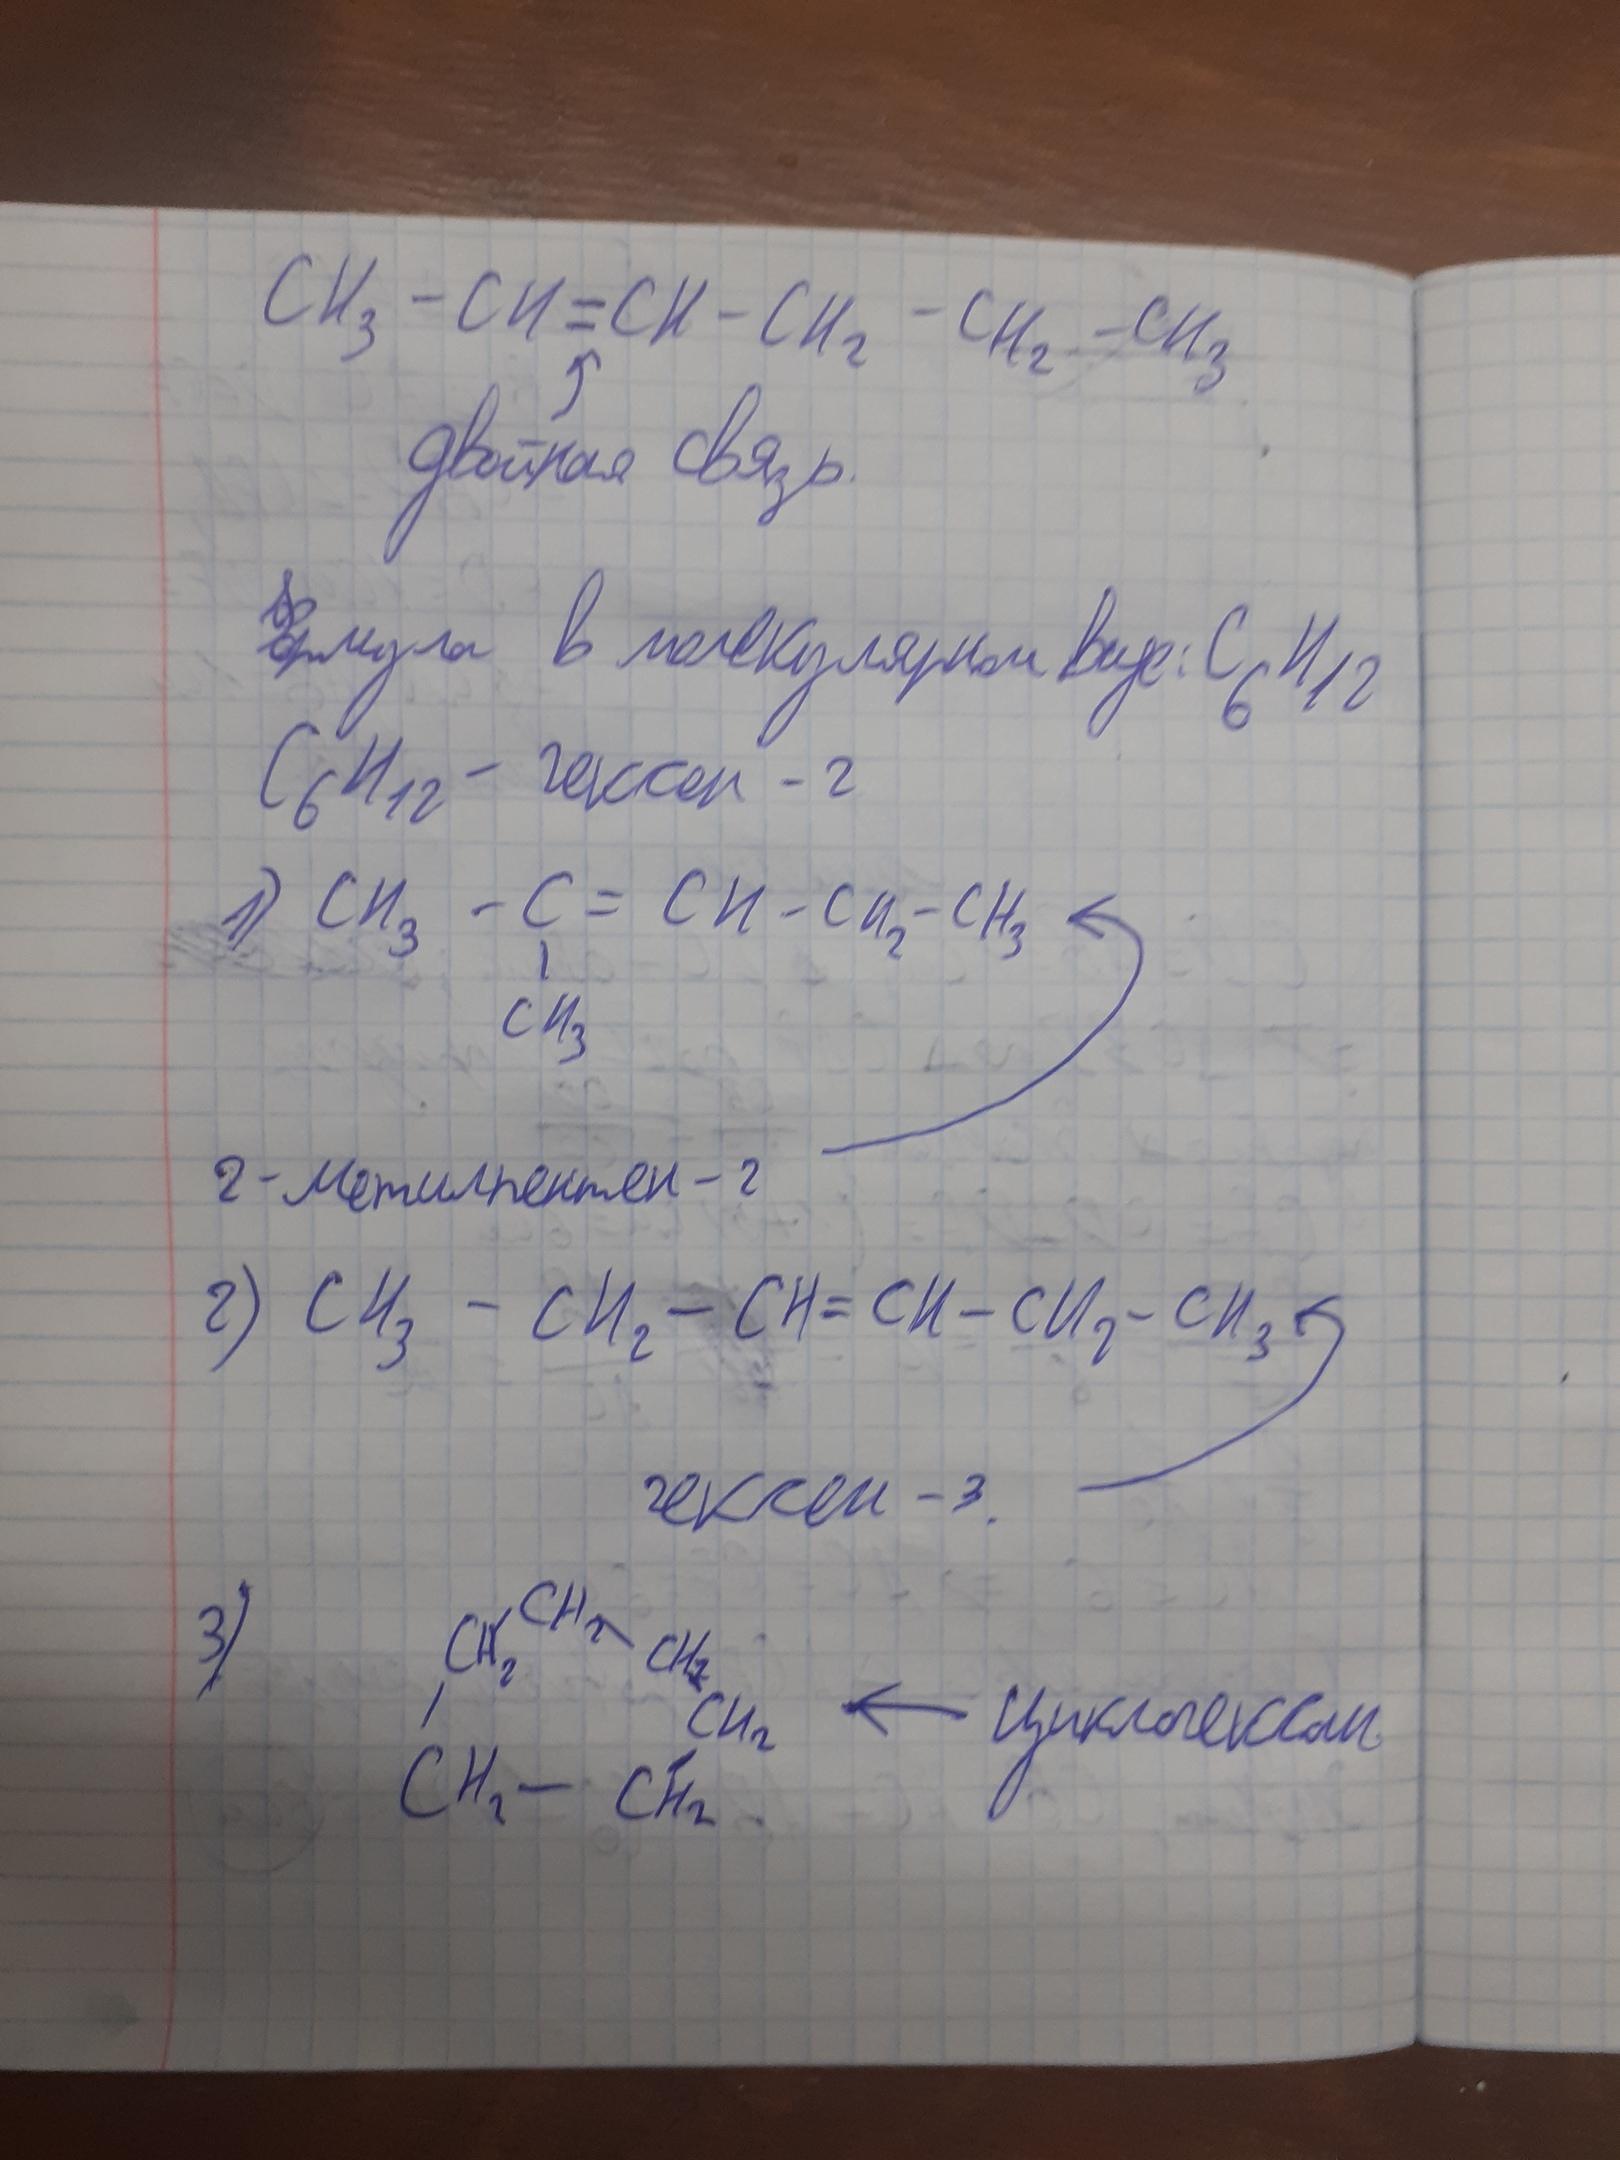 CH₃ - CH = CH - CH₂ - CH₂ - CH₃
двойная связь.
Формула в молекулярном виде: C₆H₁₂
C₆H₁₂ - гексен - 2
1) CH₃ - C = CH - CH₂ - CH₃
CH₃
2-метилпентен-2
2) CH₃ - CH₂ - CH = CH - CH₂ - CH₃
гексен - 3.
3) CH₂ CH₂ CH₂
CH₂ ← циклогексан
CH₂ - CH₂